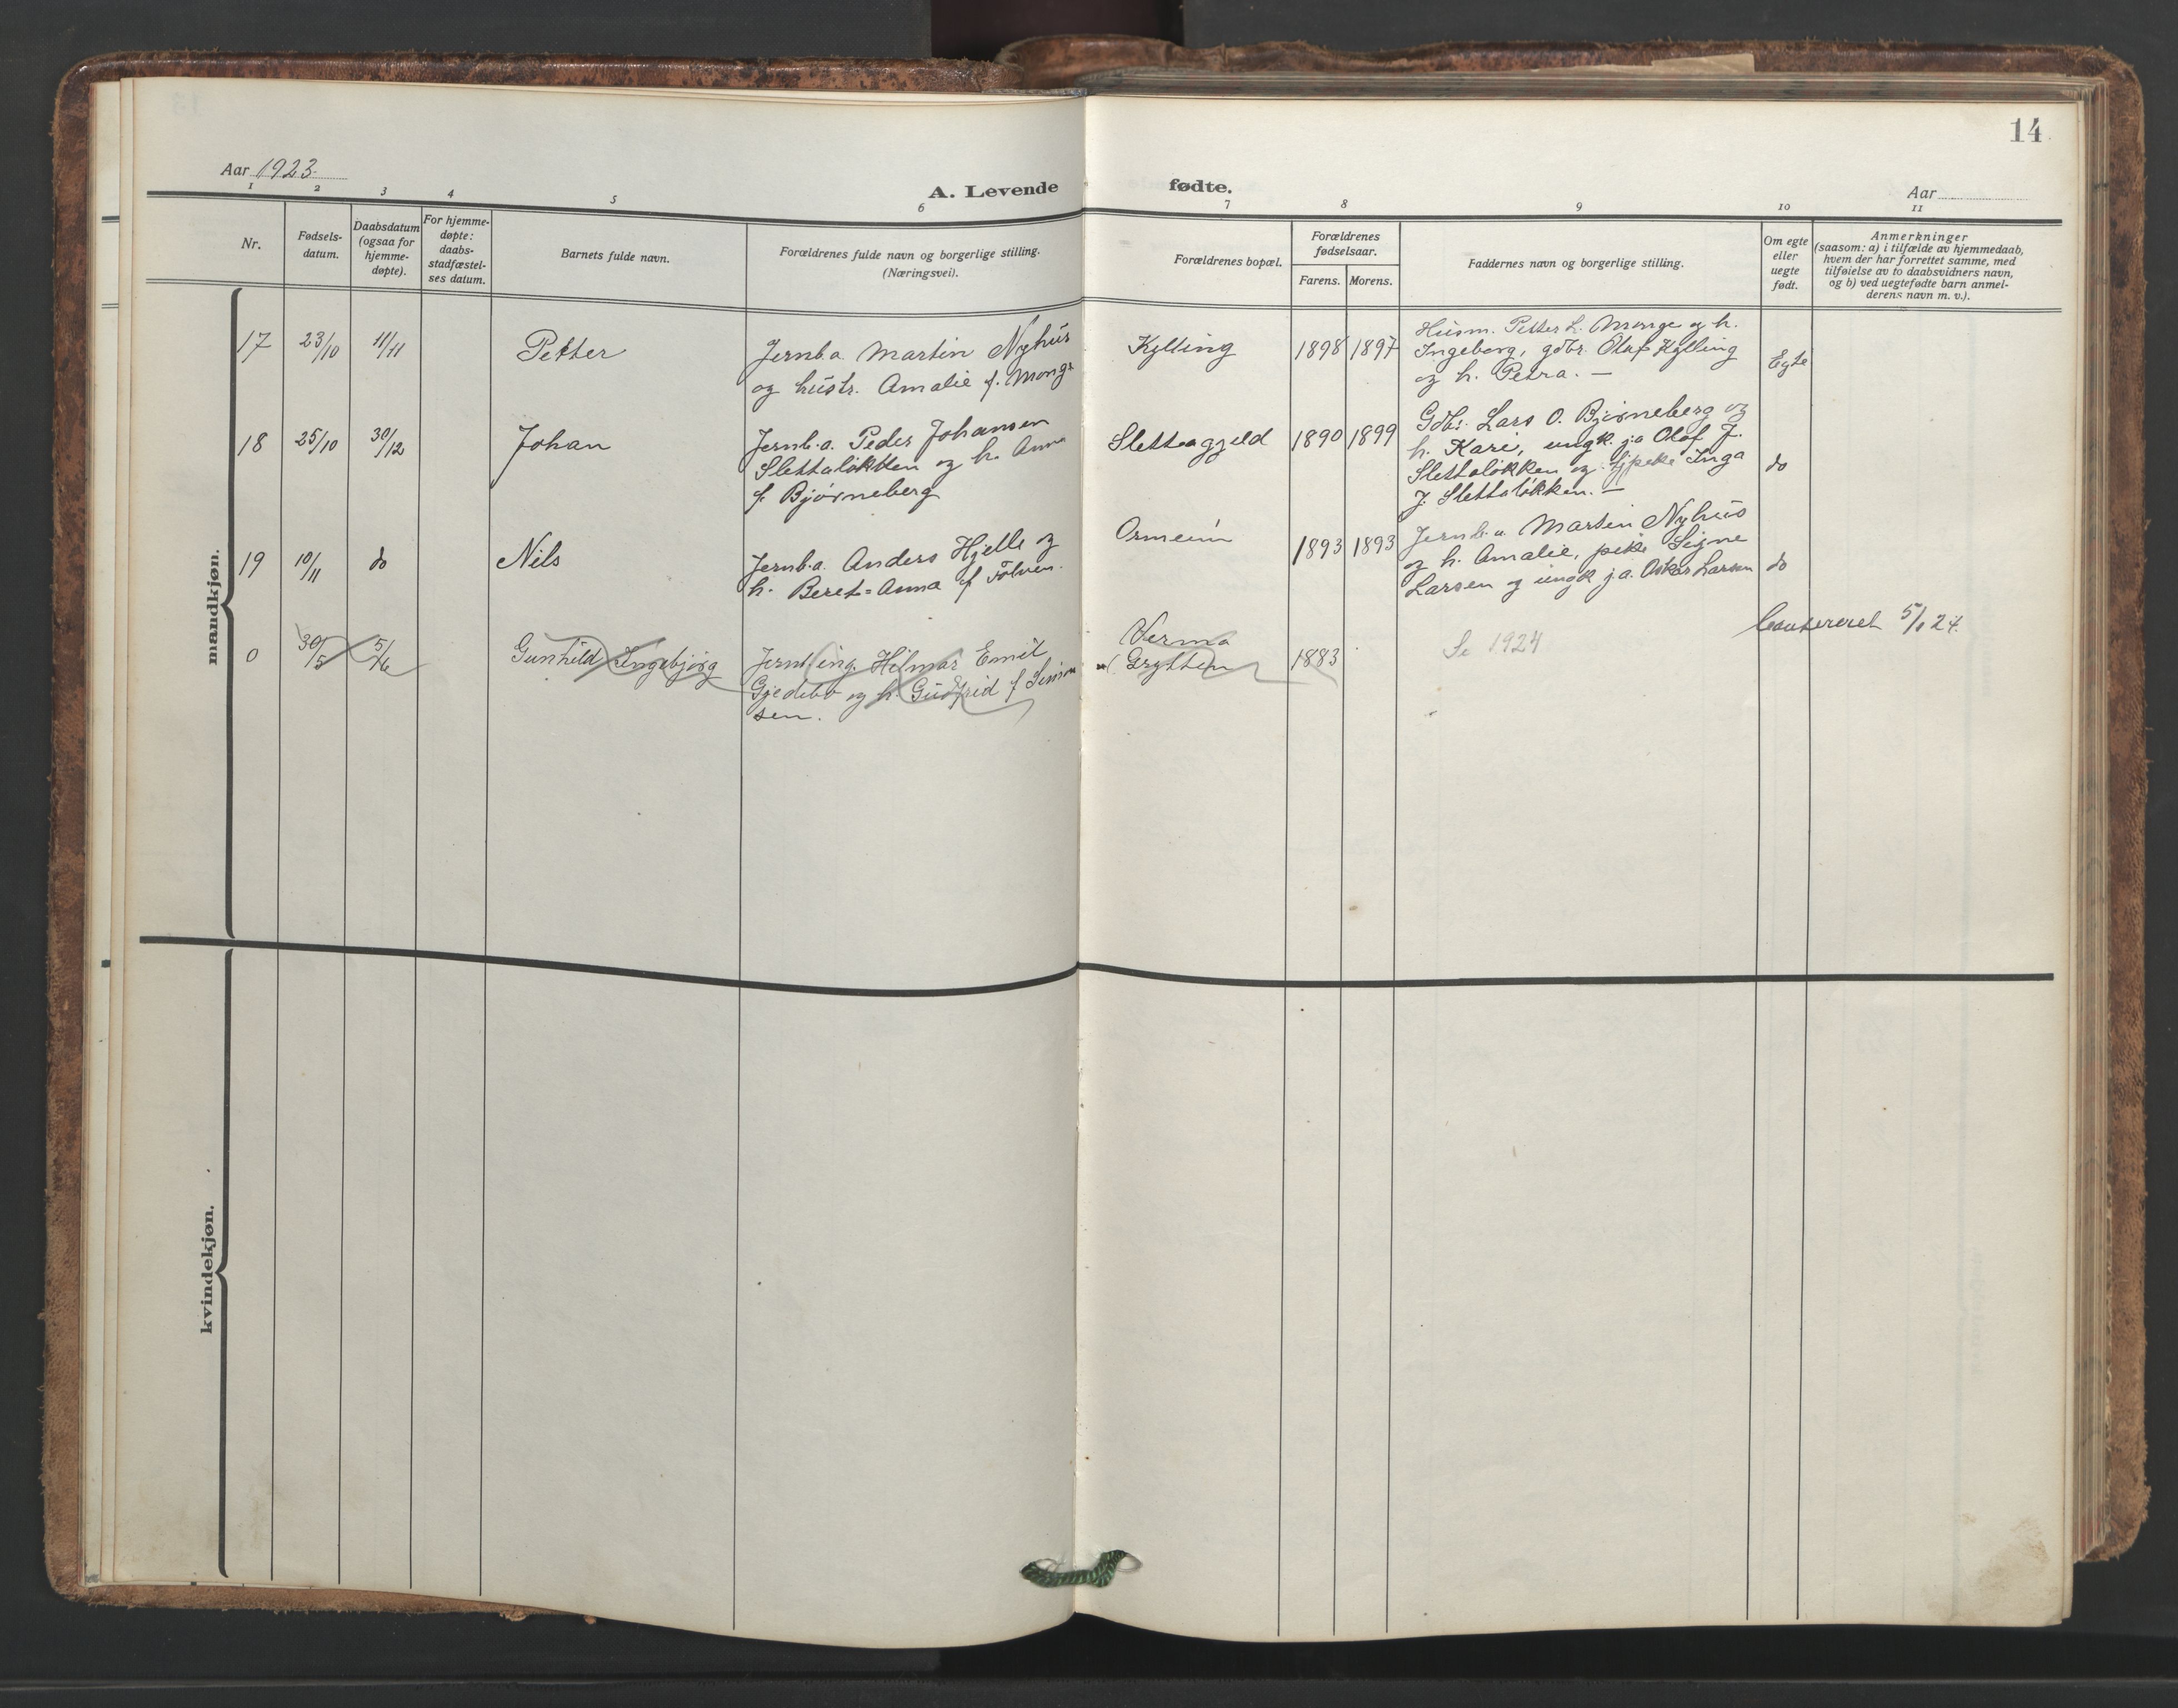 14
Aar 1923.
A. Levende fødte.
Aar
1 2 3 4 5 6 7 8 9 10 11
Nr.
Fødsels-
datum.
Daabsdatum
(ogsaa for
hjemme-
døpte).
For hjemme-
døpte:
daabs-
stadfæstel-
ses datum.
Barnets fulde navn.
Forældrenes fulde navn og borgerlige stilling.
(Næringsvei).
Forældrenes bopæl.
Forældrenes
fødselsaar.
Farens. Morens.
Faddernes navn og borgerlige stilling.
Om egte
eller
uegte
født.
Anmerkninger
(saasom: a) i tilfælde av hjemmedaab,
hvem der har forrettet samme, med
tilføielse av to daabsvidners navn,
og b) ved uegtefødte barn anmel-
derens navn m. v.).
mandkjøn.
17
23/10
11/11
Petter
Jernb.a. Martin Nyhus
og hustr. Amalie f. Monge
Kylling
1898
1897
Husm. Petter L. Monge og h.
Ingeborg, gdbr. Oluf Kylling
og h. Petra. —
Egte
18
25/10
30/12
Johan
Jernb.a. Peder Johansen
Slettaløkken og h. Anna
f. Bjørneberg
Slettagjeld
1890
1899
Gdbr. Lars O. Bjørneberg og
h. Kari, ungk. j.a Olof J.
Slettaløkken og tjpike Inga
J. Slettaløkken. —
do
19
10/11
do
Nils
Jernb.a. Anders Hjelle og
h. Beret=Anna f Tolven.
Ormeim
1893
1893
Jernb.a. Martin Nyhus
og h. Amalie, pike Signe
Larsen og ungk j.a. Oskar Larsen
do
Conferert 5/1 24.
0
30/5
5/6
Gunhild Ingebjørg
Jernb.ing. Hilmar Emil
Gjedebo og h. Gudfrid f Simon
sen.
Verma
Grytten
1883
Se 1924
kvindekjøn.